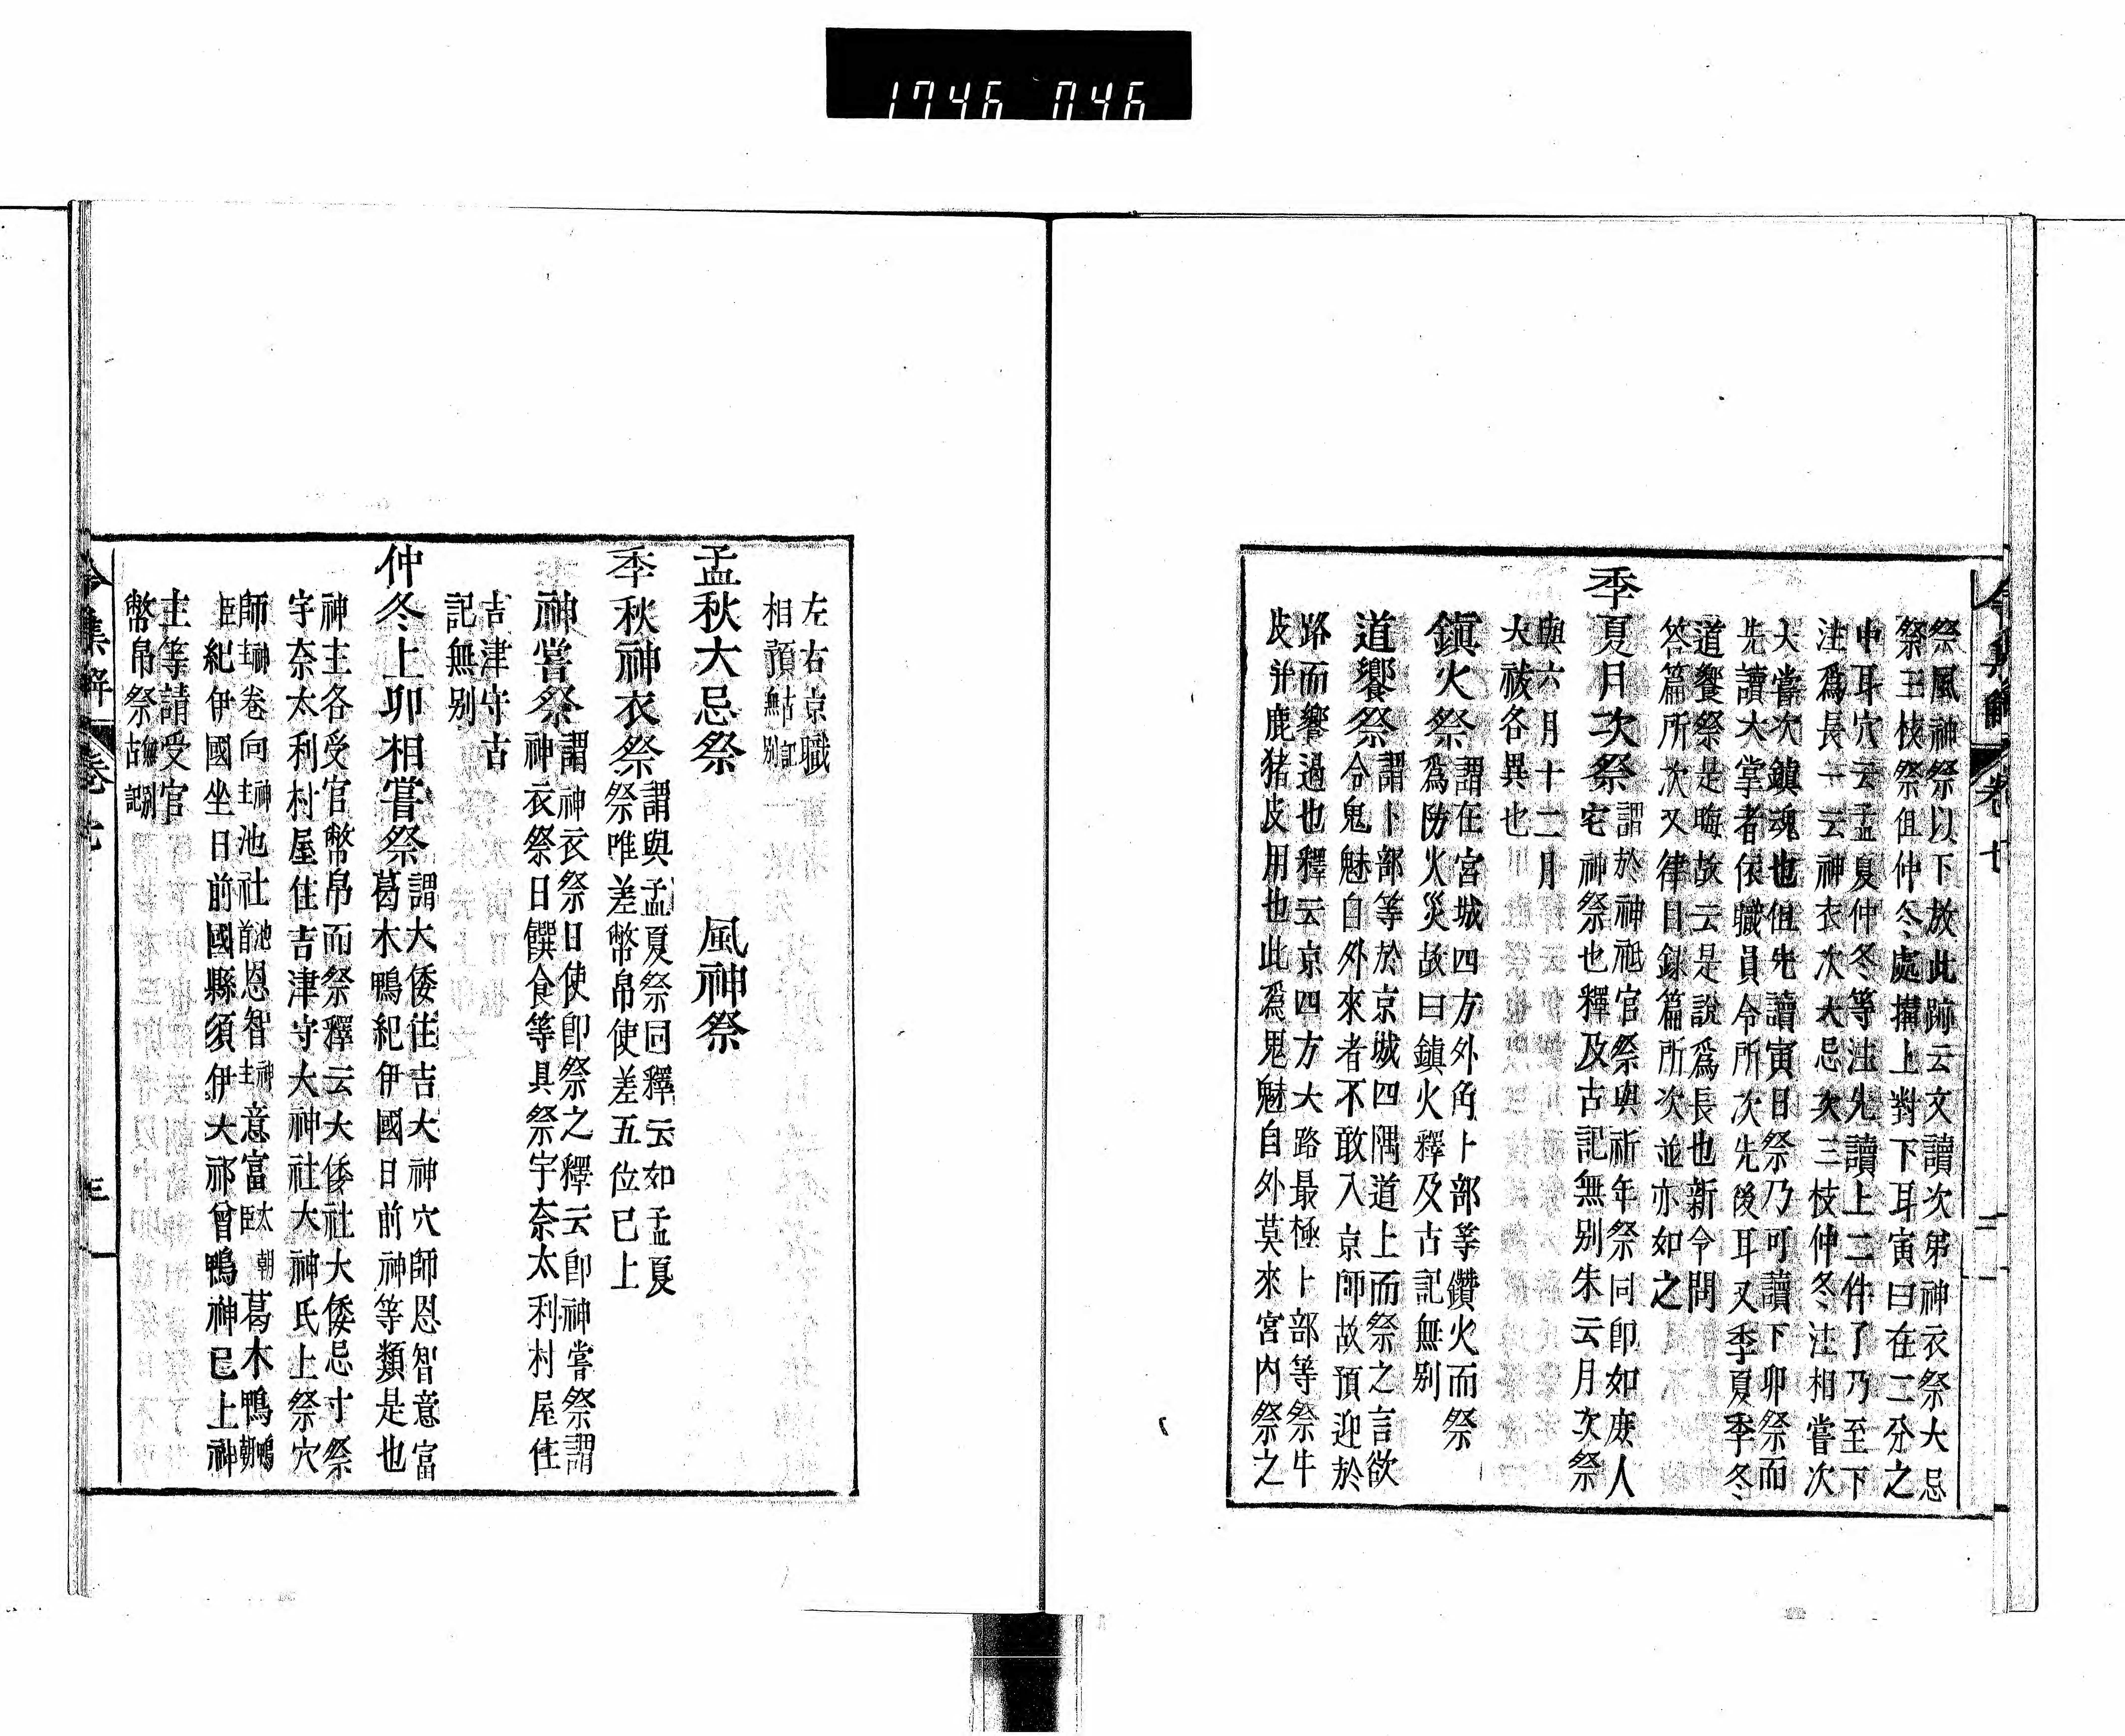 1746 046
祭風神祭以下放此跡云文讀次弟神衣祭大忌
祭三枝祭但仲冬處搆上對下耳寅日在二分之
中耳穴云孟夏仲冬等注先讀上二件了乃至下
注爲長一云神衣次大忌次三枝仲冬注相嘗次
大嘗次鎮魂也但先讀寅日祭乃可讀下卯祭而
先讀大掌者依職員令所次先後耳又季夏季冬
道饗祭是晦故云是說爲長也新令問
答篇所次又律目錄篇所次並亦如之
季夏月次祭
謂於神祗官祭與祈年祭同卽如庻人
宅神祭也釋及古記無別朱云月次祭
與六月十二月
大祓各異也
鎮火祭
謂在宮城四方外角卜部等鑽火而祭
爲防火災故曰鎮火釋及古記無別
道饗祭
謂卜部等於京城四隅道上而祭之言欲
令鬼魅自外來者不敢入京師故預迎於
路而饗過也釋云京四方大路最極卜部等祭牛
皮并鹿猪皮用也此爲鬼魅自外莫來宮內祭之
令集解 卷七 二
左右京職
相預古記無別
孟秋大忌祭 風神祭
季秋神衣祭
謂與孟夏祭同釋云如孟夏
祭唯差幣帛使差五位已上
神嘗祭
謂神衣祭日使卽祭之釋云卽神嘗祭謂
神衣祭日饌食等具祭宇奈太利村屋住
吉津守古
記無別
仲冬上卯相嘗祭
謂大倭住吉大神穴師恩智意富
葛木鴨紀伊國日前神等類是也
神主各受官幣帛而祭釋云大倭社大倭忌寸祭
宇奈太利村屋住吉津守大神社大神氏上祭穴
師神主卷向神主池社池首恩智神主意富太朝臣葛木鴨鴨朝
臣紀伊國坐日前國縣須伊大祁曾鴨神已上神
主等請受官
幣帛祭古記無別
令集解 卷七 三